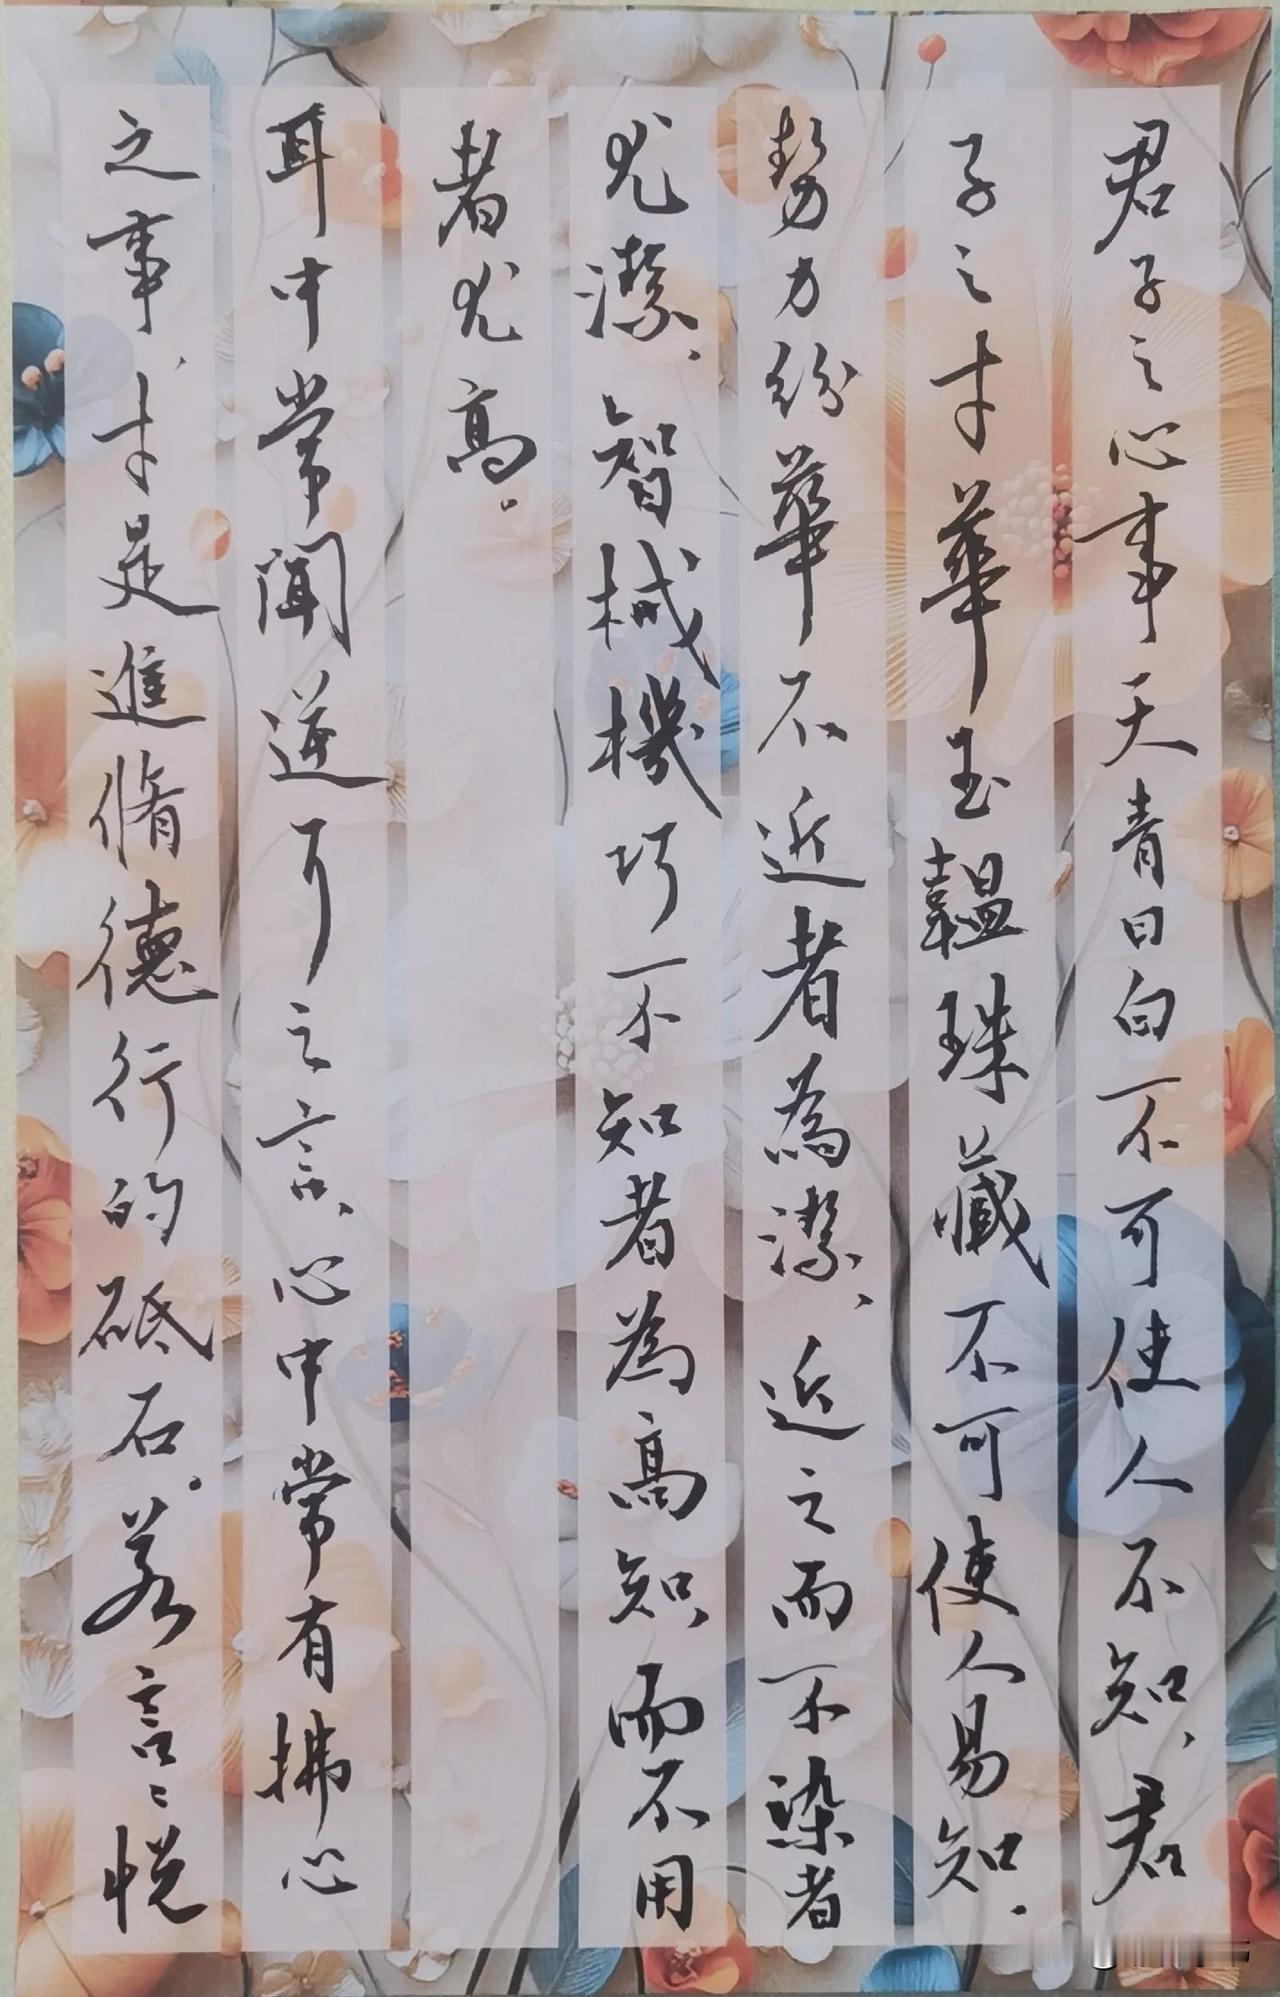 君子之心事天青日白不可使人不知、君
子之才華玉韞珠藏不可使人易知.
勢力紛華不近者為潔、近之而不染者
尤潔、智械機巧不知者為高知、而不用
者尤高.
耳中常聞逆耳之言、心中常有拂心
之事、才是進脩德行的砥石.若言言悅